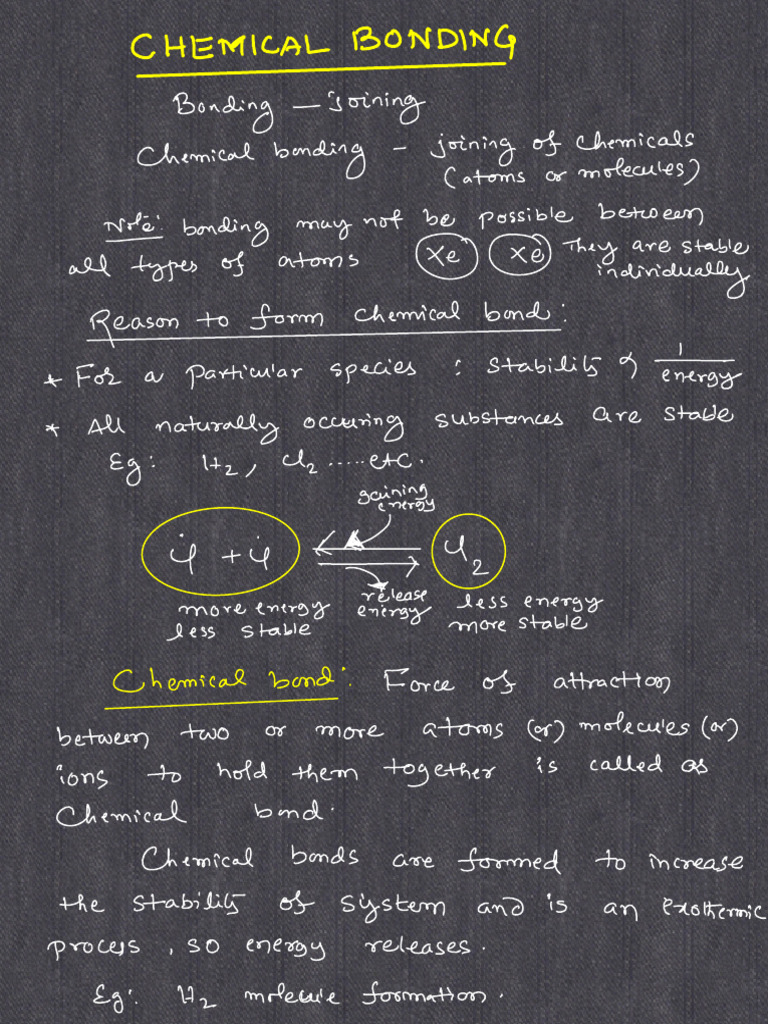 CHEMICAL BONDING
Bonding — Joining
Chemical bonding - joining of chemicals
(atoms or molecules)
Note: bonding may not be possible between
all types of atoms Xe Xe They are stable
individually
Reason to form chemical bond:
* For a particular species : Stability ∝ 1/energy
* All naturally occuring substances are stable
Eg: H2, Cl2 .....etc.
gaining
energy
Cl + Cl ⇌ Cl2
more energy release less energy
less stable energy more stable
Chemical bond: Force of attraction
between two or more atoms (or) molecules (or)
ions to hold them together is called as
Chemical bond.
Chemical bonds are formed to increase
the stability of system and is an exothermic
process, so energy releases.
Eg: H2 molecule formation.